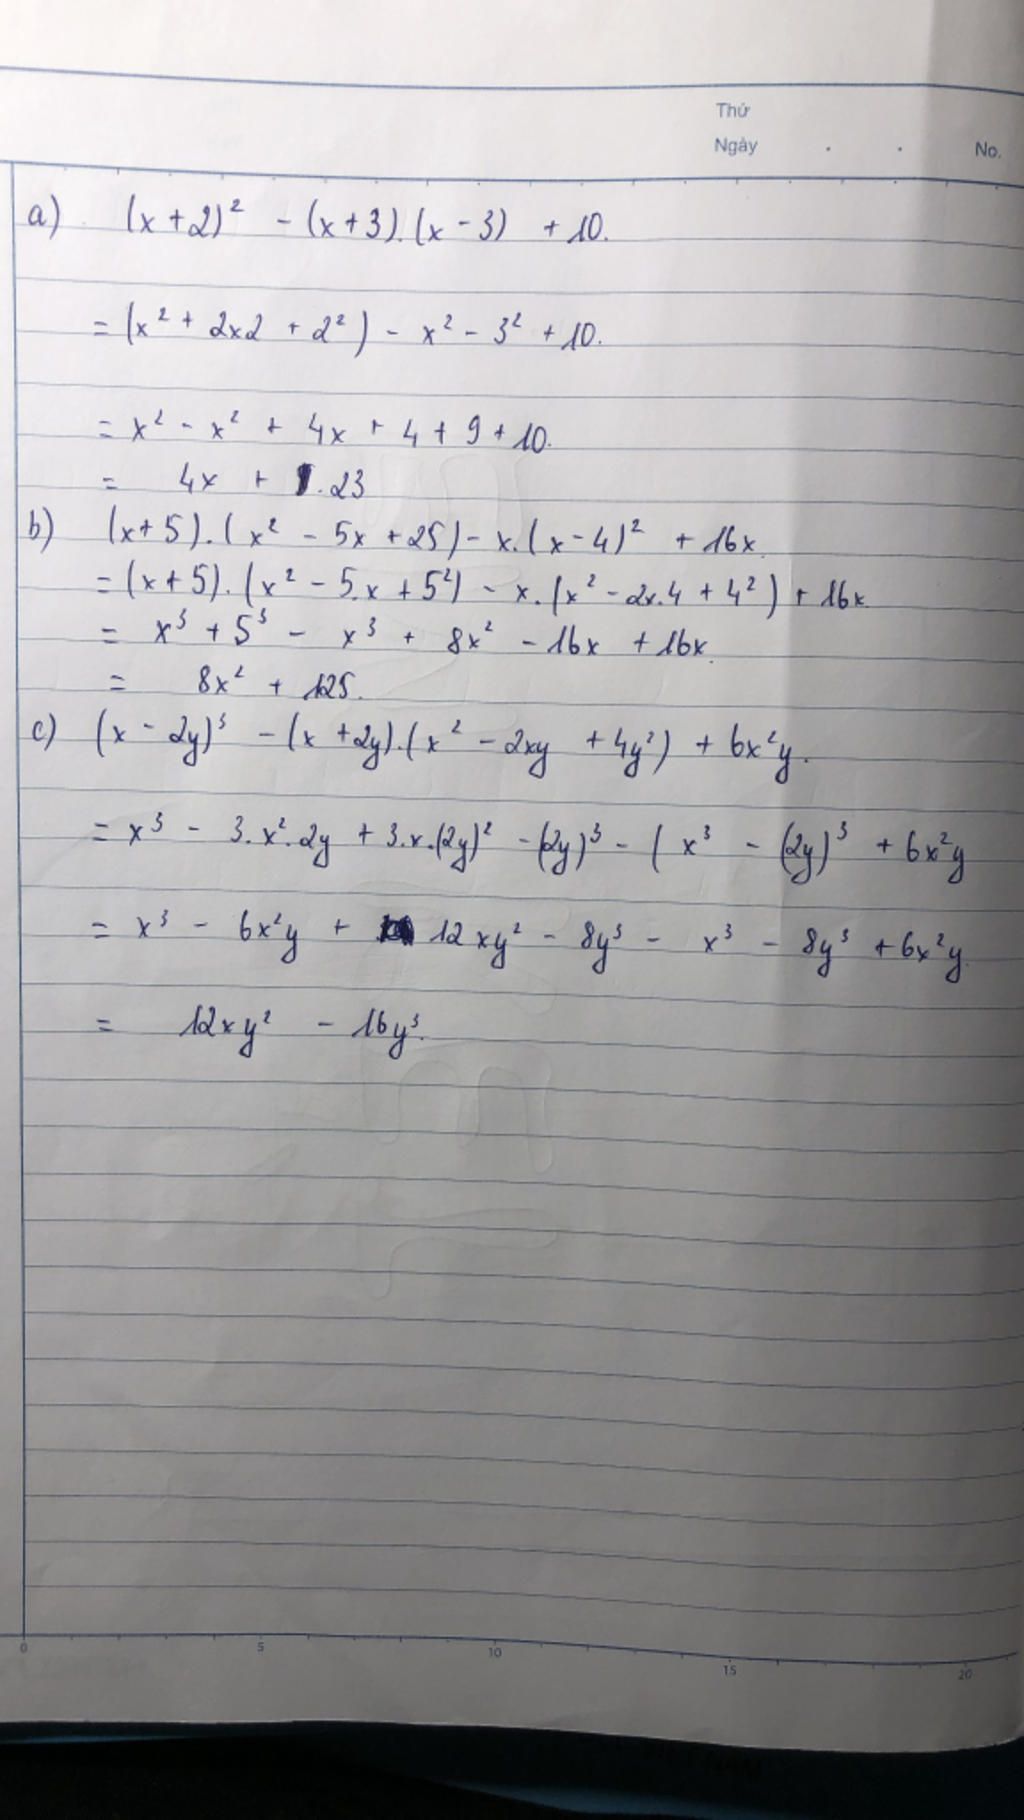 Thứ
Ngày . . No.
a) (x + 2)² - (x + 3).(x - 3) + 10.
= (x² + 2x2 + 2²) - x² - 3² + 10.
= x² - x² + 4x + 4 + 9 + 10.
= 4x + . 23
b) (x + 5).(x² - 5x + 25) - x.(x - 4)² + 16x
= (x + 5).(x² - 5.x + 5²) - x.(x² - 2x.4 + 4²) + 16x
= x³ + 5³ - x³ + 8x² - 16x + 16x.
= 8x² + 125.
c) (x - 2y)³ - (x + 2y).(x² - 2xy + 4y²) + 6x²y.
= x³ - 3.x².2y + 3.x.(2y)² - (2y)³ - ( x³ - (2y)³ + 6x²y
= x³ - 6x²y + 12xy² - 8y³ - x³ - 8y³ + 6x²y.
= 12xy² - 16y³.
0 5 10 15 20